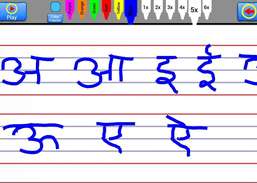 Play 1x 2x 3x 4x 5x 6x
अ आ इ ई
ऊ ए ऐ